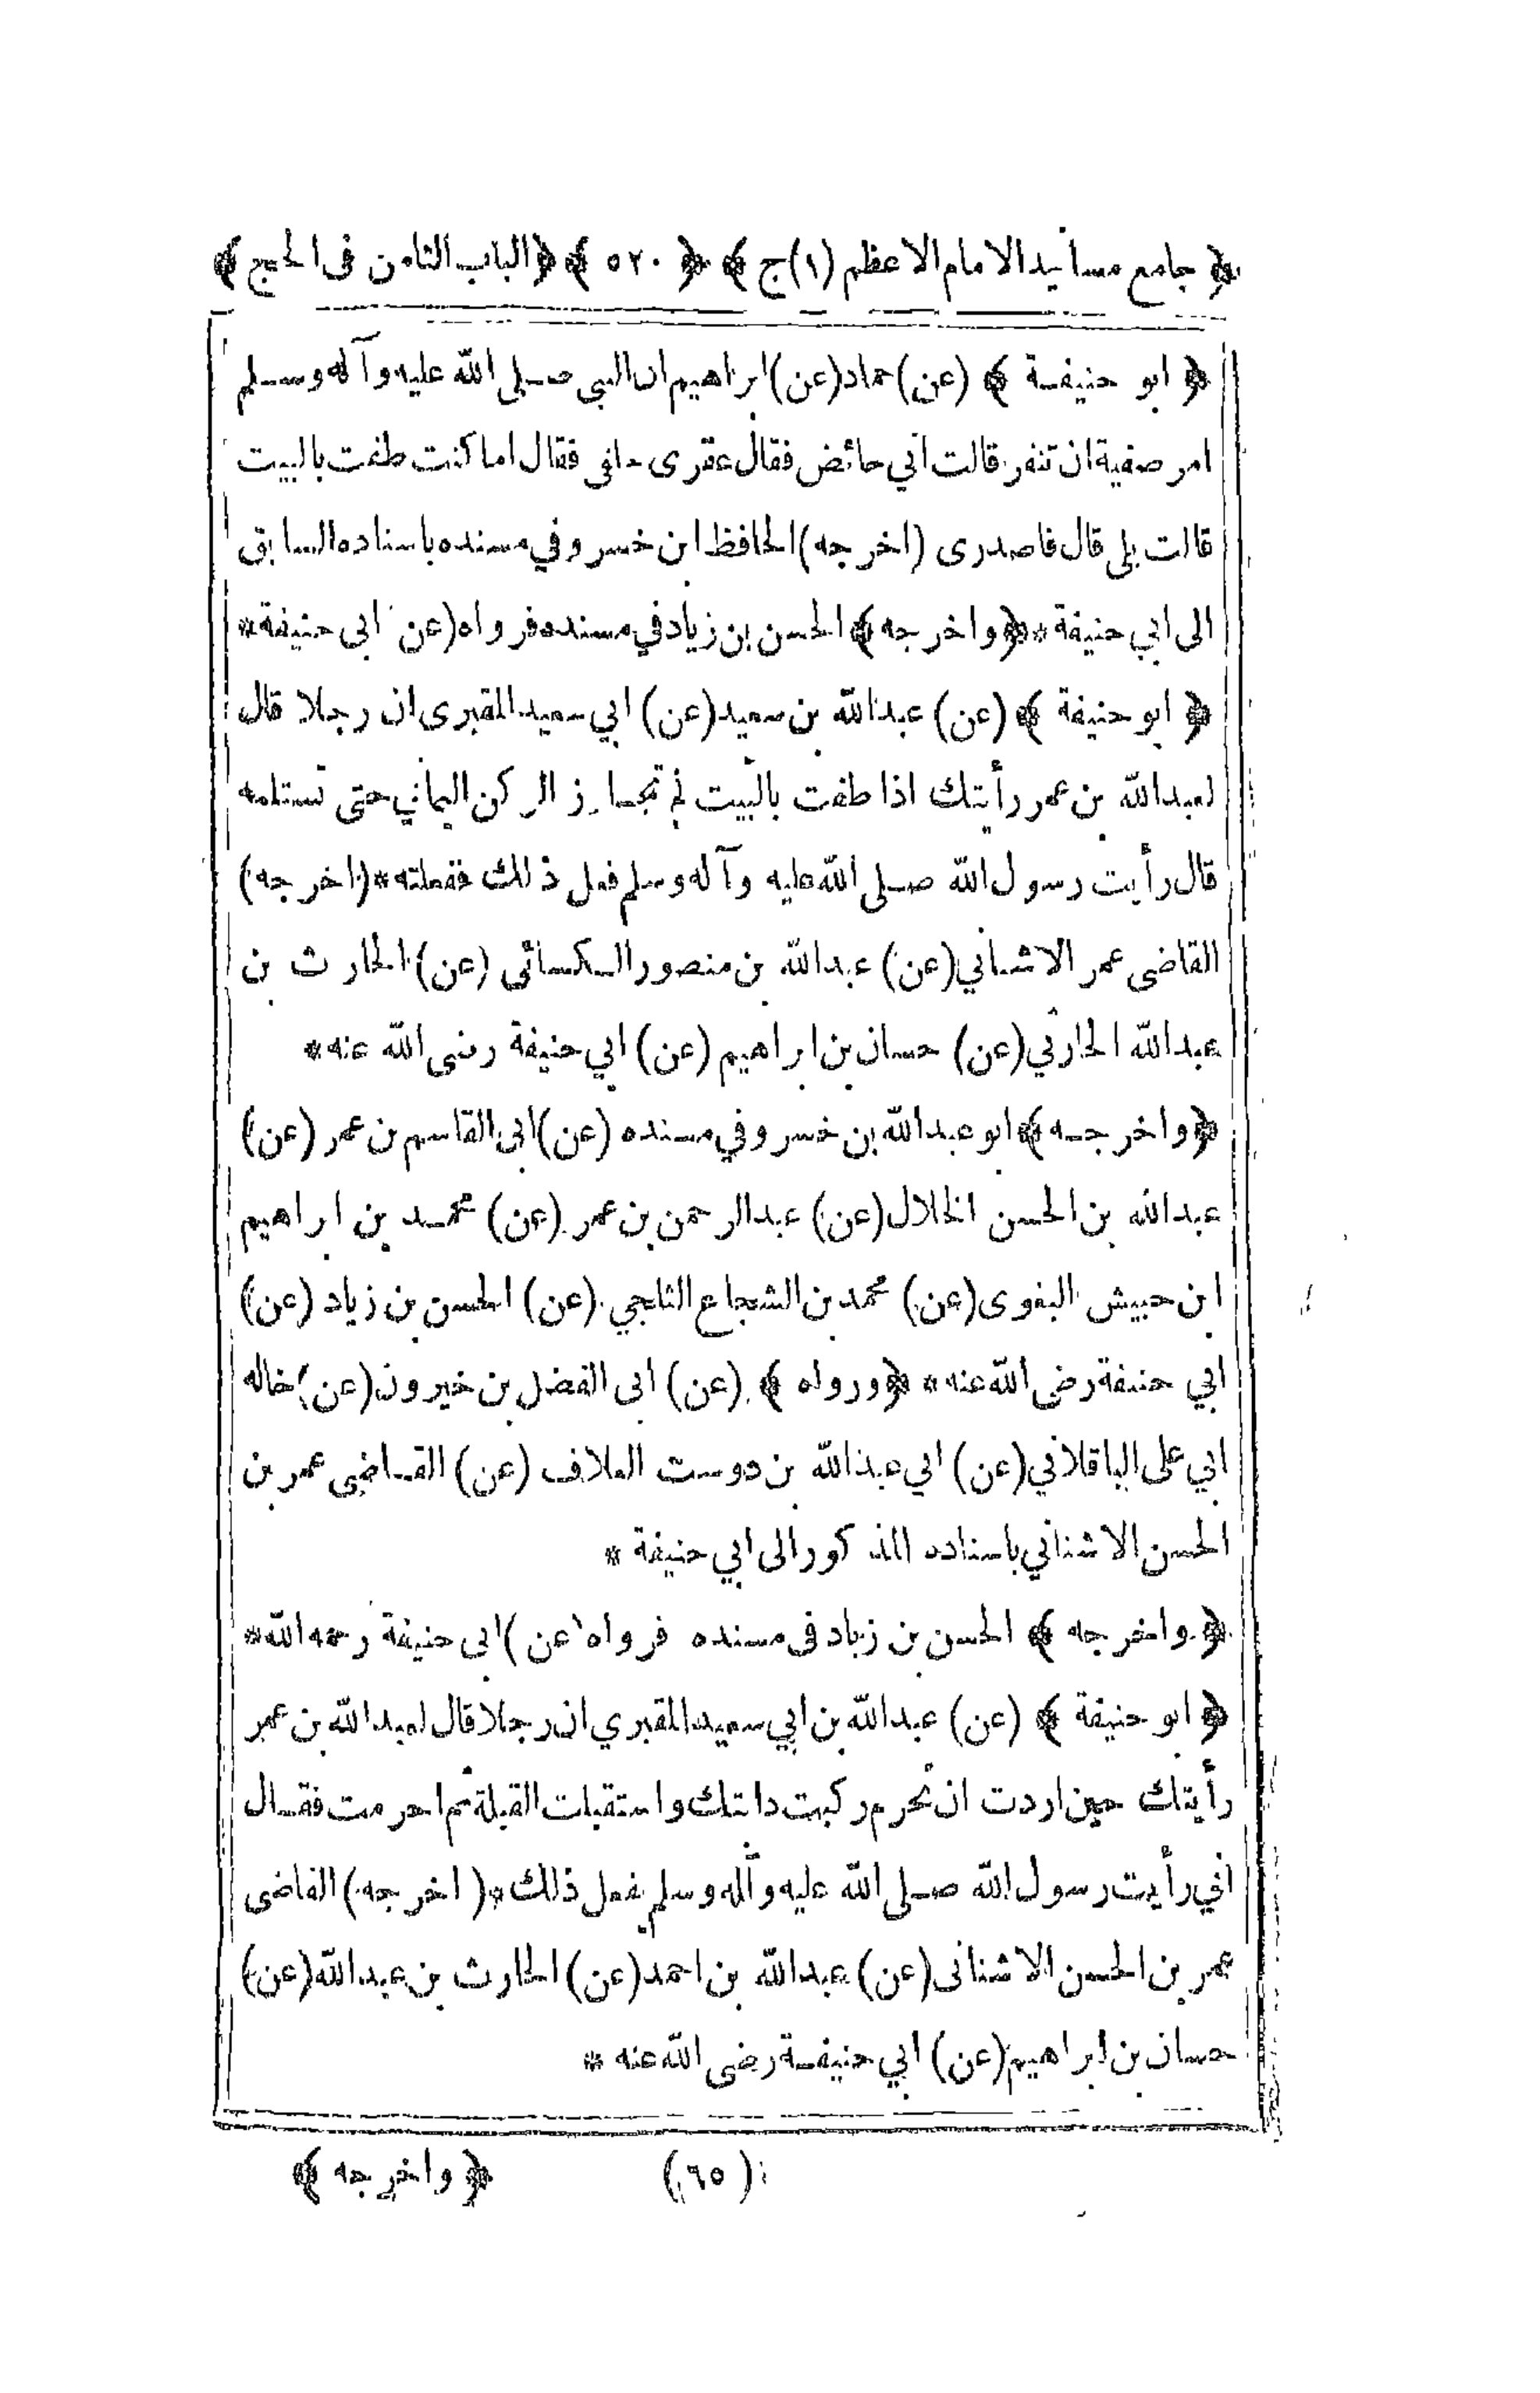 ﴿ جامع مسانيد الامام الاعظم (١) ج ﴾ ﴿ ٥٢٠ ﴾ ﴿ الباب الثامن فى الحج ﴾
﴿ ابو حنيفة ﴾ (عن) حماد (عن) ابراهيم ان النبي صلى الله عليه وآله وسلم
امر صفية ان تنفر قالت اني حائض فقال عقرى حلقى فقال اما كنت طفت بالبيت
قالت بلى قال فاصدرى (اخرجه) الحافظ ابن خسرو في مسنده باسناده السابق
الى ابي حنيفة * ﴿ واخرجه ﴾ الحسن بن زياد في مسنده فرواه (عن ابى حنيفة *
﴿ ابو حنيفة ﴾ (عن) عبدالله بن سعيد (عن) ابي سعيد المقبرى ان رجلا قال
لعبدالله بن عمر رأيتك اذا طفت بالبيت لم تجاوز الركن اليماني حتى تستلمه
قال رأيت رسول الله صلى الله عليه وآله وسلم فعل ذلك ففعلته * (اخرجه)
القاضى عمر الاشناني (عن) عبدالله بن منصور الكسائى (عن) الحارث بن
عبدالله الحارثي (عن) حسان بن ابراهيم (عن) ابي حنيفة رضى الله عنه *
﴿ واخرجه ﴾ ابو عبدالله بن خسرو في مسنده (عن) ابى القاسم بن عمر (عن)
عبدالله بن الحسن الخلال (عن) عبدالرحمن بن عمر (عن) محمد بن ابراهيم
ابن حبيش البغوى (عن) محمد بن الشجاع الثلجي (عن) الحسن بن زياد (عن)
ابي حنيفة رضى الله عنه * ﴿ ورواه ﴾ (عن) ابى الفضل بن خيرون (عن) خاله
ابي على الباقلاني (عن) ابي عبدالله بن دوست العلاف (عن) القاضى عمر بن
الحسن الاشناني باسناده المذكور الى ابي حنيفة *
﴿ واخرجه ﴾ الحسن بن زياد فى مسنده فرواه (عن) ابى حنيفة رحمه الله *
﴿ ابو حنيفة ﴾ (عن) عبدالله بن ابي سعيد المقبري ان رجلا قال لعبدالله بن عمر
رأيتك حين اردت ان تحرم ركبت دابتك واستقبلت القبلة ثم احرمت فقال
اني رأيت رسول الله صلى الله عليه وآله وسلم يفعل ذلك * (اخرجه) القاضى
عمر بن الحسن الاشنانى (عن) عبدالله بن احمد (عن) الحارث بن عبدالله (عن)
حسان بن ابراهيم (عن) ابي حنيفة رضى الله عنه *
(٦٥) ﴿ واخرجه ﴾